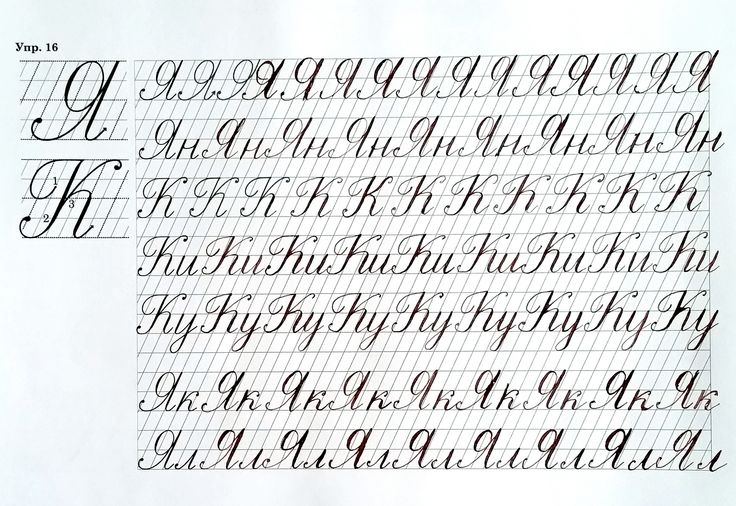 Упр. 16
Я
К
1
2
3
Я Я Я Я Я Я Я Я Я Я Я Я Я Я Я
Ян Ян Ян Ян Ян Ян Ян Ян Ян
К К К К К К К К К К К
Ки Ки Ки Ки Ки Ки Ки Ки Ки
Ку Ку Ку Ку Ку Ку Ку Ку Ку
Як Як Як Як Як Як Як Як Як
Ял Ял Ял Ял Ял Ял Ял Ял Ял